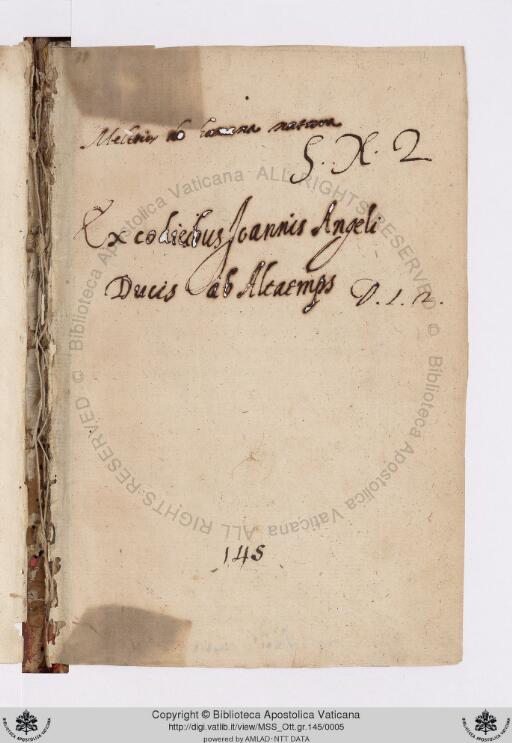 Meletius de humana natura
S. X. 2
Ex codicibus Joannis Angeli
Ducis ab Altaemps D. 1. 12.
145
Copyright © Biblioteca Apostolica Vaticana
http://digi.vatlib.it/view/MSS_Ott.gr.145/0005
powered by AMLAD-NTT DATA
© Biblioteca Apostolica Vaticana ALL RIGHTS RESERVED © Biblioteca Apostolica Vaticana ALL RIGHTS RESERVED